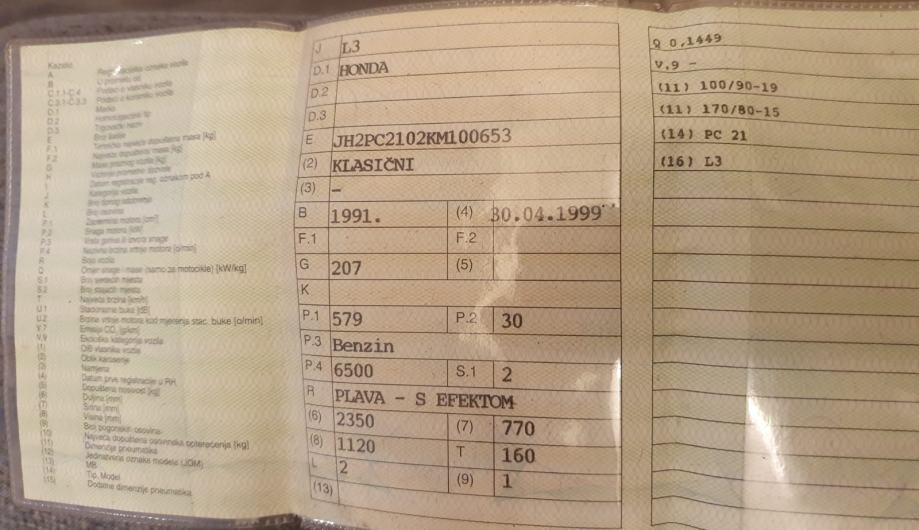 Kazalo
A
B U prometu od
C.1.1-C.4 Podaci o vlasniku vozila
C.3.1-C.3.3 Podaci o korisniku vozila
D.1 Marka
D.2 Homologacijski tip
D.3 Trgovački naziv
E Broj šasije
F.1 Tehnički najveća dopuštena masa [kg]
F.2 Najveća dopuštena masa [kg]
G Masa praznog vozila [kg]
H
I Datum registracije reg. oznakom pod A
J Kategorija vozila
K Broj tipnog odobrenja
L Broj osovina
P.1 Zapremina motora [cm³]
P.2 Snaga motora [kW]
P.3 Vrsta goriva ili izvora snage
P.4 Nazivna brzina vrtnje motora [o/min]
R Boja vozila
Q Omjer snage i mase (samo za motocikle) [kW/kg]
S.1 Broj sjedećih mjesta
S.2 Broj stajaćih mjesta
T Najveća brzina [km/h]
U.1 Stacionarna buka [dB]
U.2 Brzina vrtnje motora kod mjerenja stac. buke [o/min]
V.7 Emisija CO₂ [g/km]
V.9 Ekološka kategorija vozila
(1) OIB vlasnika vozila
(2) Oblik karoserije
(3) Namjena
(4) Datum prve registracije u RH
(5) Dopuštena nosivost [kg]
(6) Duljina [mm]
(7) Širina [mm]
(8) Visina [mm]
(9) Broj pogonskih osovina
(10) Najveća dopuštena osovinska opterećenja [kg]
(11) Dimenzije pneumatika
(12) Jedinstvena oznaka modela (JOM)
(13) MB
(14) Tip, Model
(15) Dodatne dimenzije pneumatika
J L3
D.1 HONDA
D.2
D.3
E JH2PC2102KM100653
(2) KLASIČNI
(3) –
B 1991. (4) 30.04.1999
F.1 F.2
G 207 (5)
K
P.1 579 P.2 30
P.3 Benzin
P.4 6500 S.1 2
R PLAVA - S EFEKTOM
(6) 2350 (7) 770
(8) 1120 T 160
L 2 (9) 1
(13)
Q 0,1449
V.9 -
(11) 100/90-19
(11) 170/80-15
(14) PC 21
(16) L3